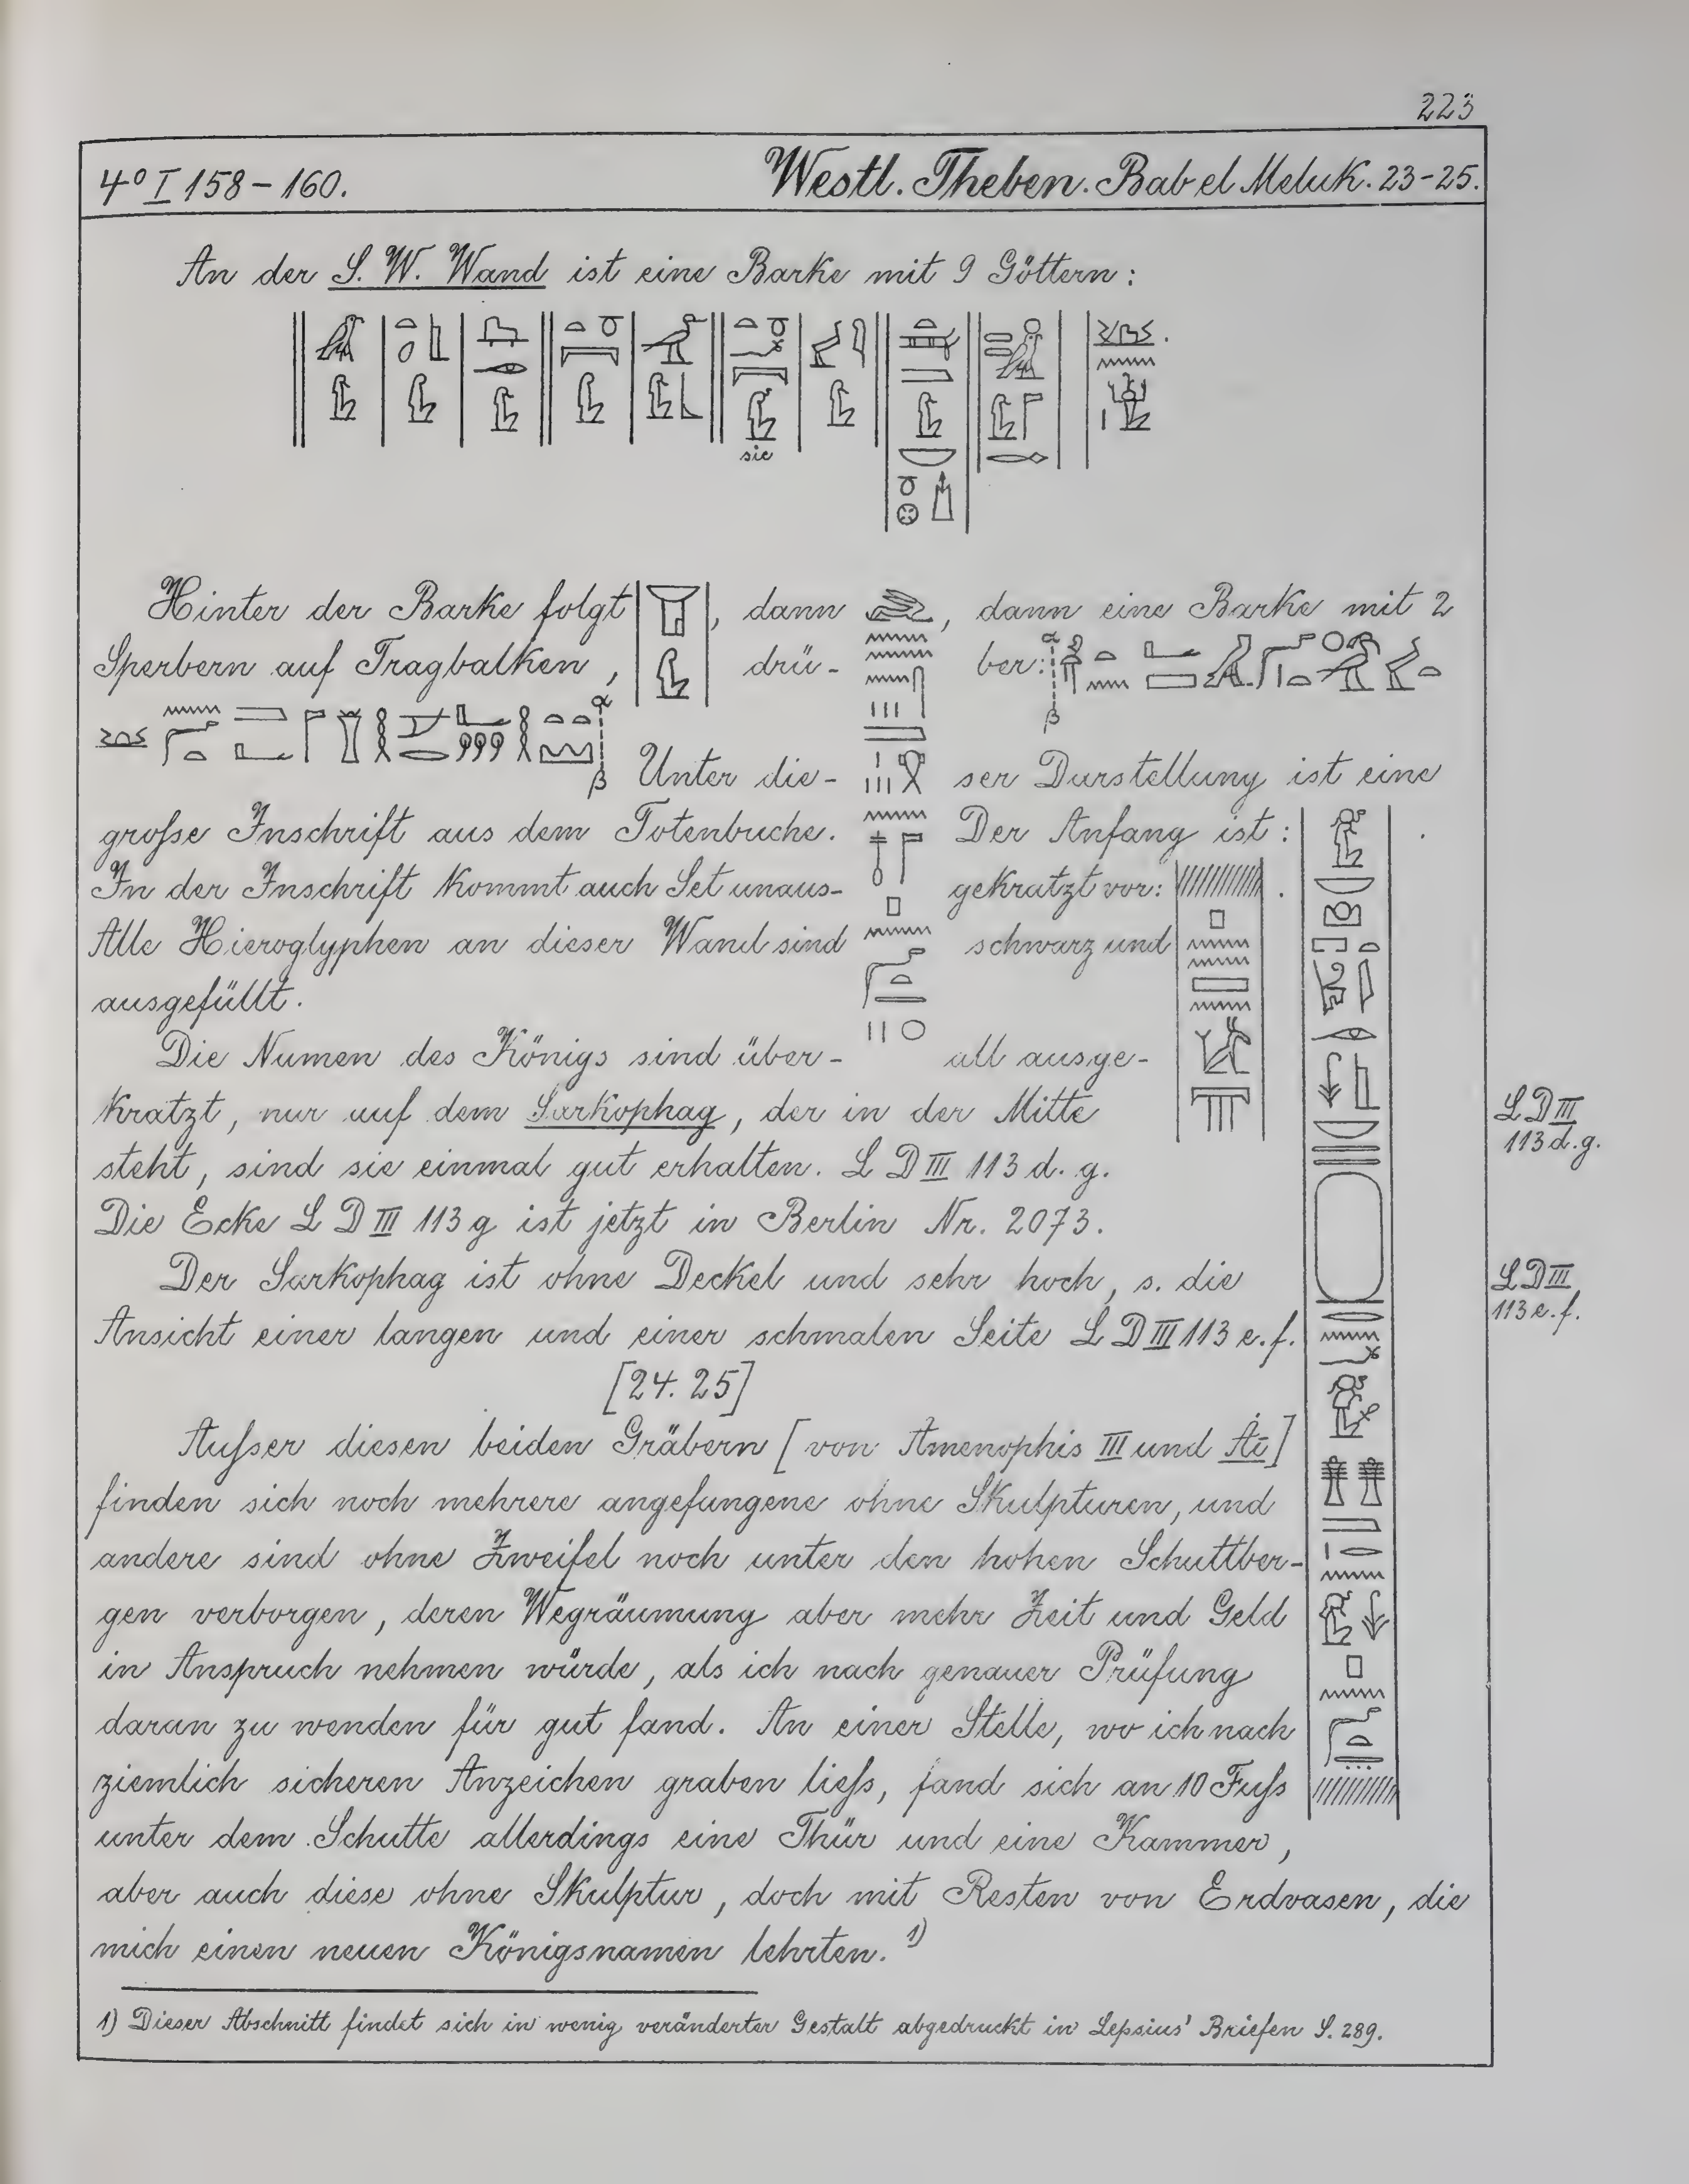 223
4° I 158–160. Westl. Theben. Bab el Meluk. 23–25.
An der S. W. Wand ist eine Barke mit 9 Göttern:
sic
Hinter der Barke folgt , dann , dann eine Barke mit 2
Sperbern auf Tragbalken, drü- ber: α
β
α
β Unter die- ser Darstellung ist eine
große Inschrift aus dem Totenbuche. Der Anfang ist:
In der Inschrift kommt auch Set unaus- gekratzt vor: .
Alle Hieroglyphen an dieser Wand sind schwarz und
ausgefüllt.
Die Namen des Königs sind über- all ausge-
kratzt, nur auf dem Sarkophag, der in der Mitte
steht, sind sie einmal gut erhalten. L D III 113 d. g.
L D III
113 d. g.
Die Ecke L D III 113 g ist jetzt in Berlin Nr. 2073.
Der Sarkophag ist ohne Deckel und sehr hoch, s. die
Ansicht einer langen und einer schmalen Seite L D III 113 e. f.
L D III
113 e. f.
[24. 25]
Außer diesen beiden Gräbern [von Amenophis III und Ȧī]
finden sich noch mehrere angefangene ohne Skulpturen, und
andere sind ohne Zweifel noch unter den hohen Schuttber-
gen verborgen, deren Wegräumung aber mehr Zeit und Geld
in Anspruch nehmen würde, als ich nach genauer Prüfung
daran zu wenden für gut fand. An einer Stelle, wo ich nach
ziemlich sicheren Anzeichen graben ließ, fand sich an 10 Fuß
unter dem Schutte allerdings eine Thür und eine Kammer,
aber auch diese ohne Skulptur, doch mit Resten von Erdvasen, die
mich einen neuen Königsnamen lehrten. 1)
1) Dieser Abschnitt findet sich in wenig veränderter Gestalt abgedruckt in Lepsius' Briefen S. 289.